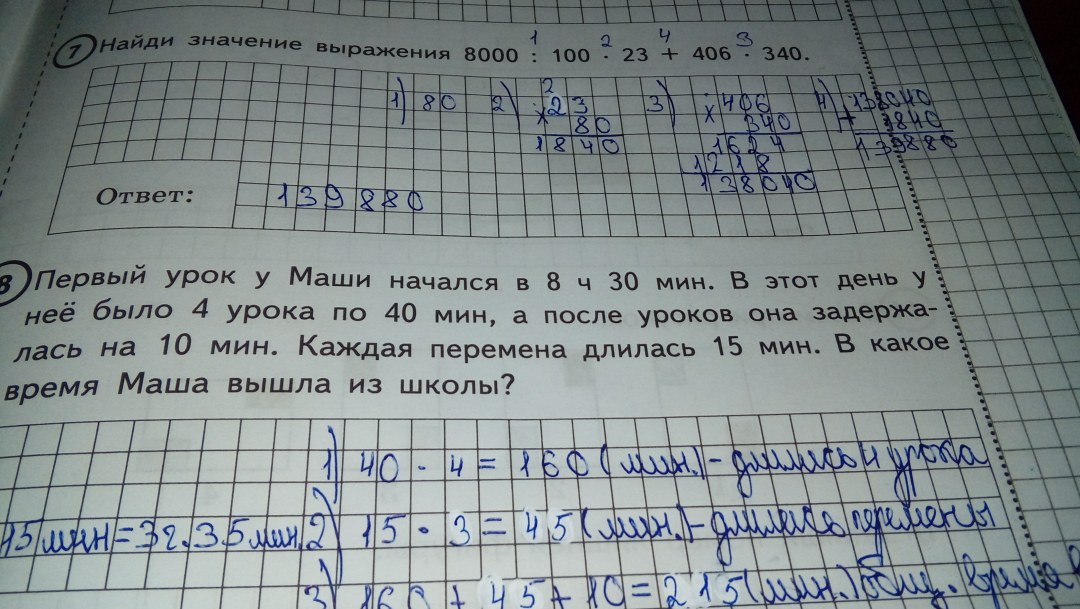 1 2 4 3
7 Найди значение выражения 8000 : 100 · 23 + 406 · 340.
1) 80 2) 2 3) 4)
× 23 × 406 + 138040
80 340 3840
1840 1624 139880
1218
138040
Ответ: 139880
8 Первый урок у Маши начался в 8 ч 30 мин. В этот день у
неё было 4 урока по 40 мин, а после уроков она задержа-
лась на 10 мин. Каждая перемена длилась 15 мин. В какое
время Маша вышла из школы?
1) 40 · 4 = 160 (мин.) - длились 4 урока
15 мин = 3 ч. 35 мин. 2) 15 · 3 = 45 (мин.) - длились перемены
3) 160 + 45 + 10 = 215 (мин.) общ. время